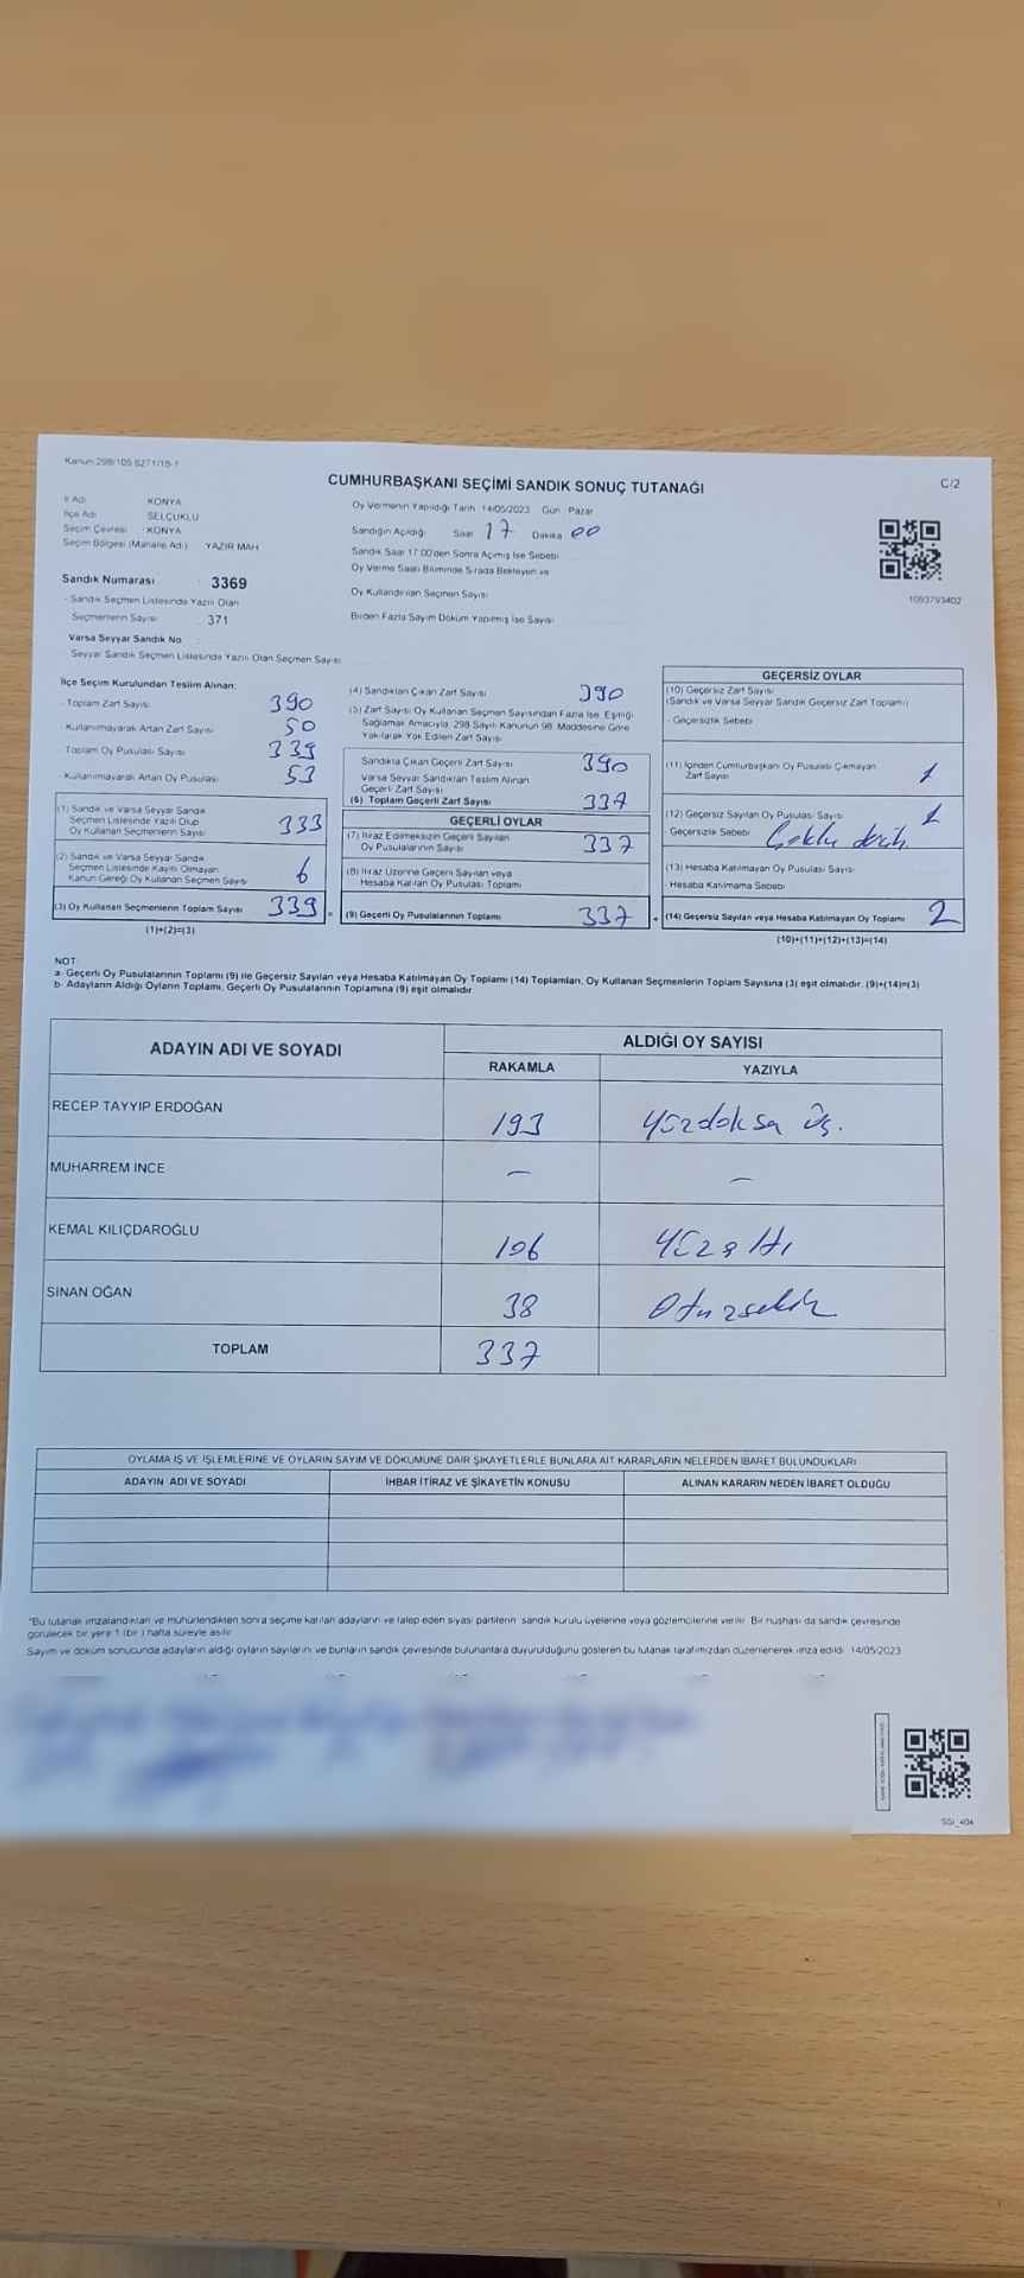 Kanun 298/105 6271/18-1
CUMHURBAŞKANI SEÇİMİ SANDIK SONUÇ TUTANAĞI
C/2
İl Adı KONYA
İlçe Adı SELÇUKLU
Seçim Çevresi KONYA
Seçim Bölgesi (Mahalle Adı) YAZIR MAH
Sandık Numarası 3369
- Sandık Seçmen Listesinde Yazılı Olan
Seçmenlerin Sayısı 371
Varsa Seyyar Sandık No
Seyyar Sandık Seçmen Listesinde Yazılı Olan Seçmen Sayısı
Oy Vermenin Yapıldığı Tarih 14/05/2023 Gün Pazar
Sandığın Açıldığı Saat 17 Dakika 00
Sandık Saat 17:00'den Sonra Açılmış İse Sebebi
Oy Verme Saati Bitiminde Sırada Bekleyen ve
Oy Kullandırılan Seçmen Sayısı
Birden Fazla Sayım Döküm Yapılmış İse Sayısı
1093793402
İlçe Seçim Kurulundan Teslim Alınan:
- Toplam Zarf Sayısı 390
- Kullanılmayarak Artan Zarf Sayısı 50
Toplam Oy Pusulası Sayısı 339
- Kullanılmayarak Artan Oy Pusulası 53
(1) Sandık ve Varsa Seyyar Sandık
Seçmen Listesinde Yazılı Olup
Oy Kullanan Seçmenlerin Sayısı 333
(2) Sandık ve Varsa Seyyar Sandık
Seçmen Listesinde Kayıtlı Olmayan
Kanun Gereği Oy Kullanan Seçmen Sayısı 6
(3) Oy Kullanan Seçmenlerin Toplam Sayısı 339
(1)+(2)=(3)
(4) Sandıktan Çıkan Zarf Sayısı 390
(5) Zarf Sayısı Oy Kullanan Seçmen Sayısından Fazla İse, Eşitliği
Sağlamak Amacıyla, 298 Sayılı Kanunun 98. Maddesine Göre
Yakılarak Yok Edilen Zarf Sayısı
Sandıkta Çıkan Geçerli Zarf Sayısı 390
Varsa Seyyar Sandıktan Teslim Alınan
Geçerli Zarf Sayısı
(6) Toplam Geçerli Zarf Sayısı 337
GEÇERLİ OYLAR
(7) İtiraz Edilmeksizin Geçerli Sayılan
Oy Pusulalarının Sayısı 337
(8) İtiraz Üzerine Geçerli Sayılan veya
Hesaba Katılan Oy Pusulası Toplamı
(9) Geçerli Oy Pusulalarının Toplamı 337
GEÇERSİZ OYLAR
(10) Geçersiz Zarf Sayısı
(Sandık ve Varsa Seyyar Sandık Geçersiz Zarf Toplamı)
- Geçersizlik Sebebi
(11) İçinden Cumhurbaşkanı Oy Pusulası Çıkmayan
Zarf Sayısı 1
(12) Geçersiz Sayılan Oy Pusulası Sayısı 1
- Geçersizlik Sebebi
(13) Hesaba Katılmayan Oy Pusulası Sayısı
- Hesaba Katılmama Sebebi
(14) Geçersiz Sayılan veya Hesaba Katılmayan Oy Toplamı 2
(10)+(11)+(12)+(13)=(14)
NOT
a- Geçerli Oy Pusulalarının Toplamı (9) ile Geçersiz Sayılan veya Hesaba Katılmayan Oy Toplamı (14) Toplamları, Oy Kullanan Seçmenlerin Toplam Sayısına (3) eşit olmalıdır. (9)+(14)=(3)
b- Adayların Aldığı Oyların Toplamı, Geçerli Oy Pusulalarının Toplamına (9) eşit olmalıdır.
ADAYIN ADI VE SOYADI ALDIĞI OY SAYISI
RAKAMLA YAZIYLA
RECEP TAYYIP ERDOĞAN 193 Yüzdoksa Üç.
MUHARREM İNCE – –
KEMAL KILIÇDAROĞLU 106 Yüzaltı
SİNAN OĞAN 38 Otuzsekiz
TOPLAM 337
OYLAMA İŞ VE İŞLEMLERİNE VE OYLARIN SAYIM VE DÖKÜMÜNE DAİR ŞİKAYETLERLE BUNLARA AİT KARARLARIN NELERDEN İBARET BULUNDUKLARI
ADAYIN ADI VE SOYADI İHBAR İTİRAZ VE ŞİKAYETİN KONUSU ALINAN KARARIN NEDEN İBARET OLDUĞU
"Bu tutanak imzalandıktan ve mühürlendikten sonra seçime katılan adayların ve talep eden siyasi partilerin sandık kurulu üyelerine veya gözlemcilerine verilir. Bir nüshası da sandık çevresinde
görülecek bir yere 1 (bir) hafta süreyle asılır.
Sayım ve döküm sonucunda adayların aldığı oyların sayılarını ve bunların sandık çevresinde bulunanlara duyurulduğunu gösteren bu tutanak tarafımızdan düzenlenerek imza edildi. 14/05/2023
SSI_404